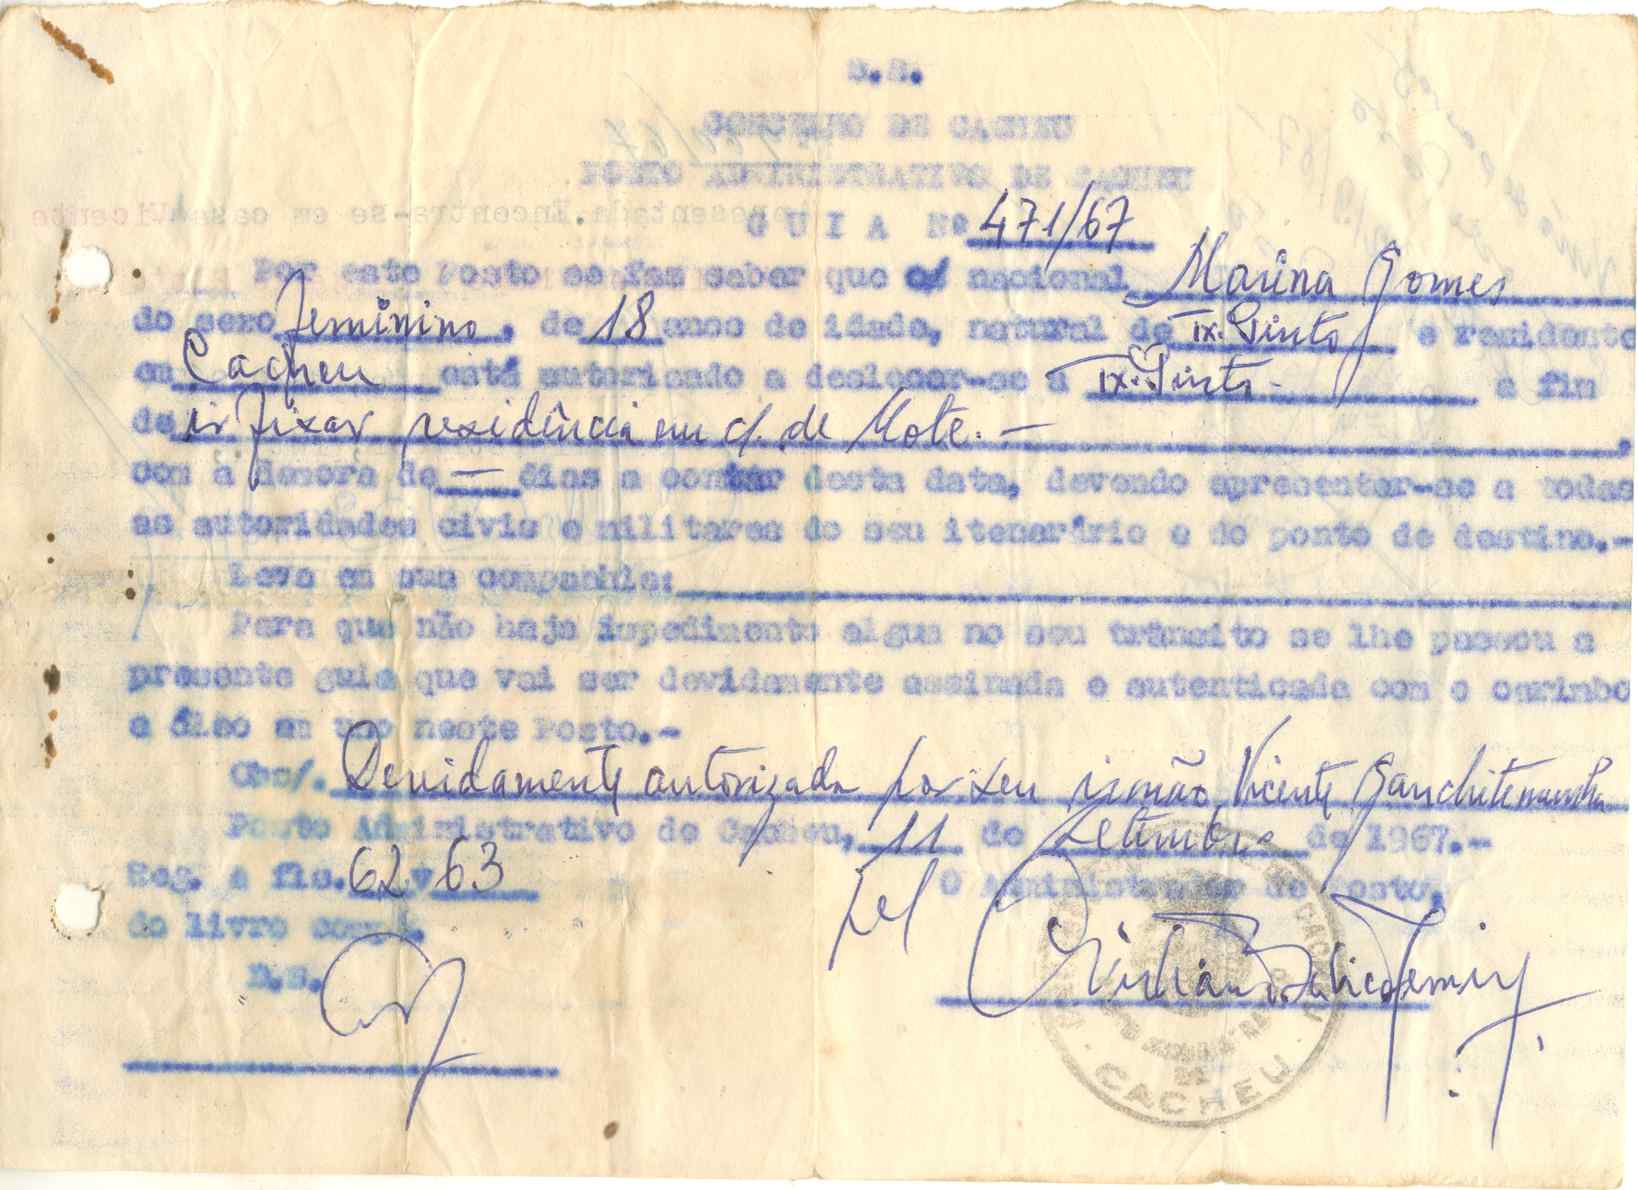 D.S.
CONCELHO DE CACHEU
POSTO ADMINISTRATIVO DE CACHEU
G U I A Nº 471/67
Por este Posto se faz saber que o nacional Marina Gomes
do sexo feminino, de 18 anos de idade, natural de Tx. Pinto e residente
em Cacheu está autorizado a deslocar-se a Tx. Pinto - a fim
de ir fixar residência em c/. de Mote. -
com a demora de — dias a contar desta data, devendo apresentar-se a todas
as autoridades civis e militares do seu itenerário e do ponto de destino.-
Leva em sua companhia:
Para que não haja impedimento algum no seu trânsito se lhe passou a
presente guia que vai ser devidamente assinada e autenticada com o carimbo
a óleo em uso neste Posto.-
Obs/. Devidamente autorizada por seu irmão, Vicente
Posto Administrativo de Cacheu, 11 de Setembro de 1967.-
Reg. a fls. 62 v 63
O Administrador de Posto,
do livro comp.
D.S.
CACHEU